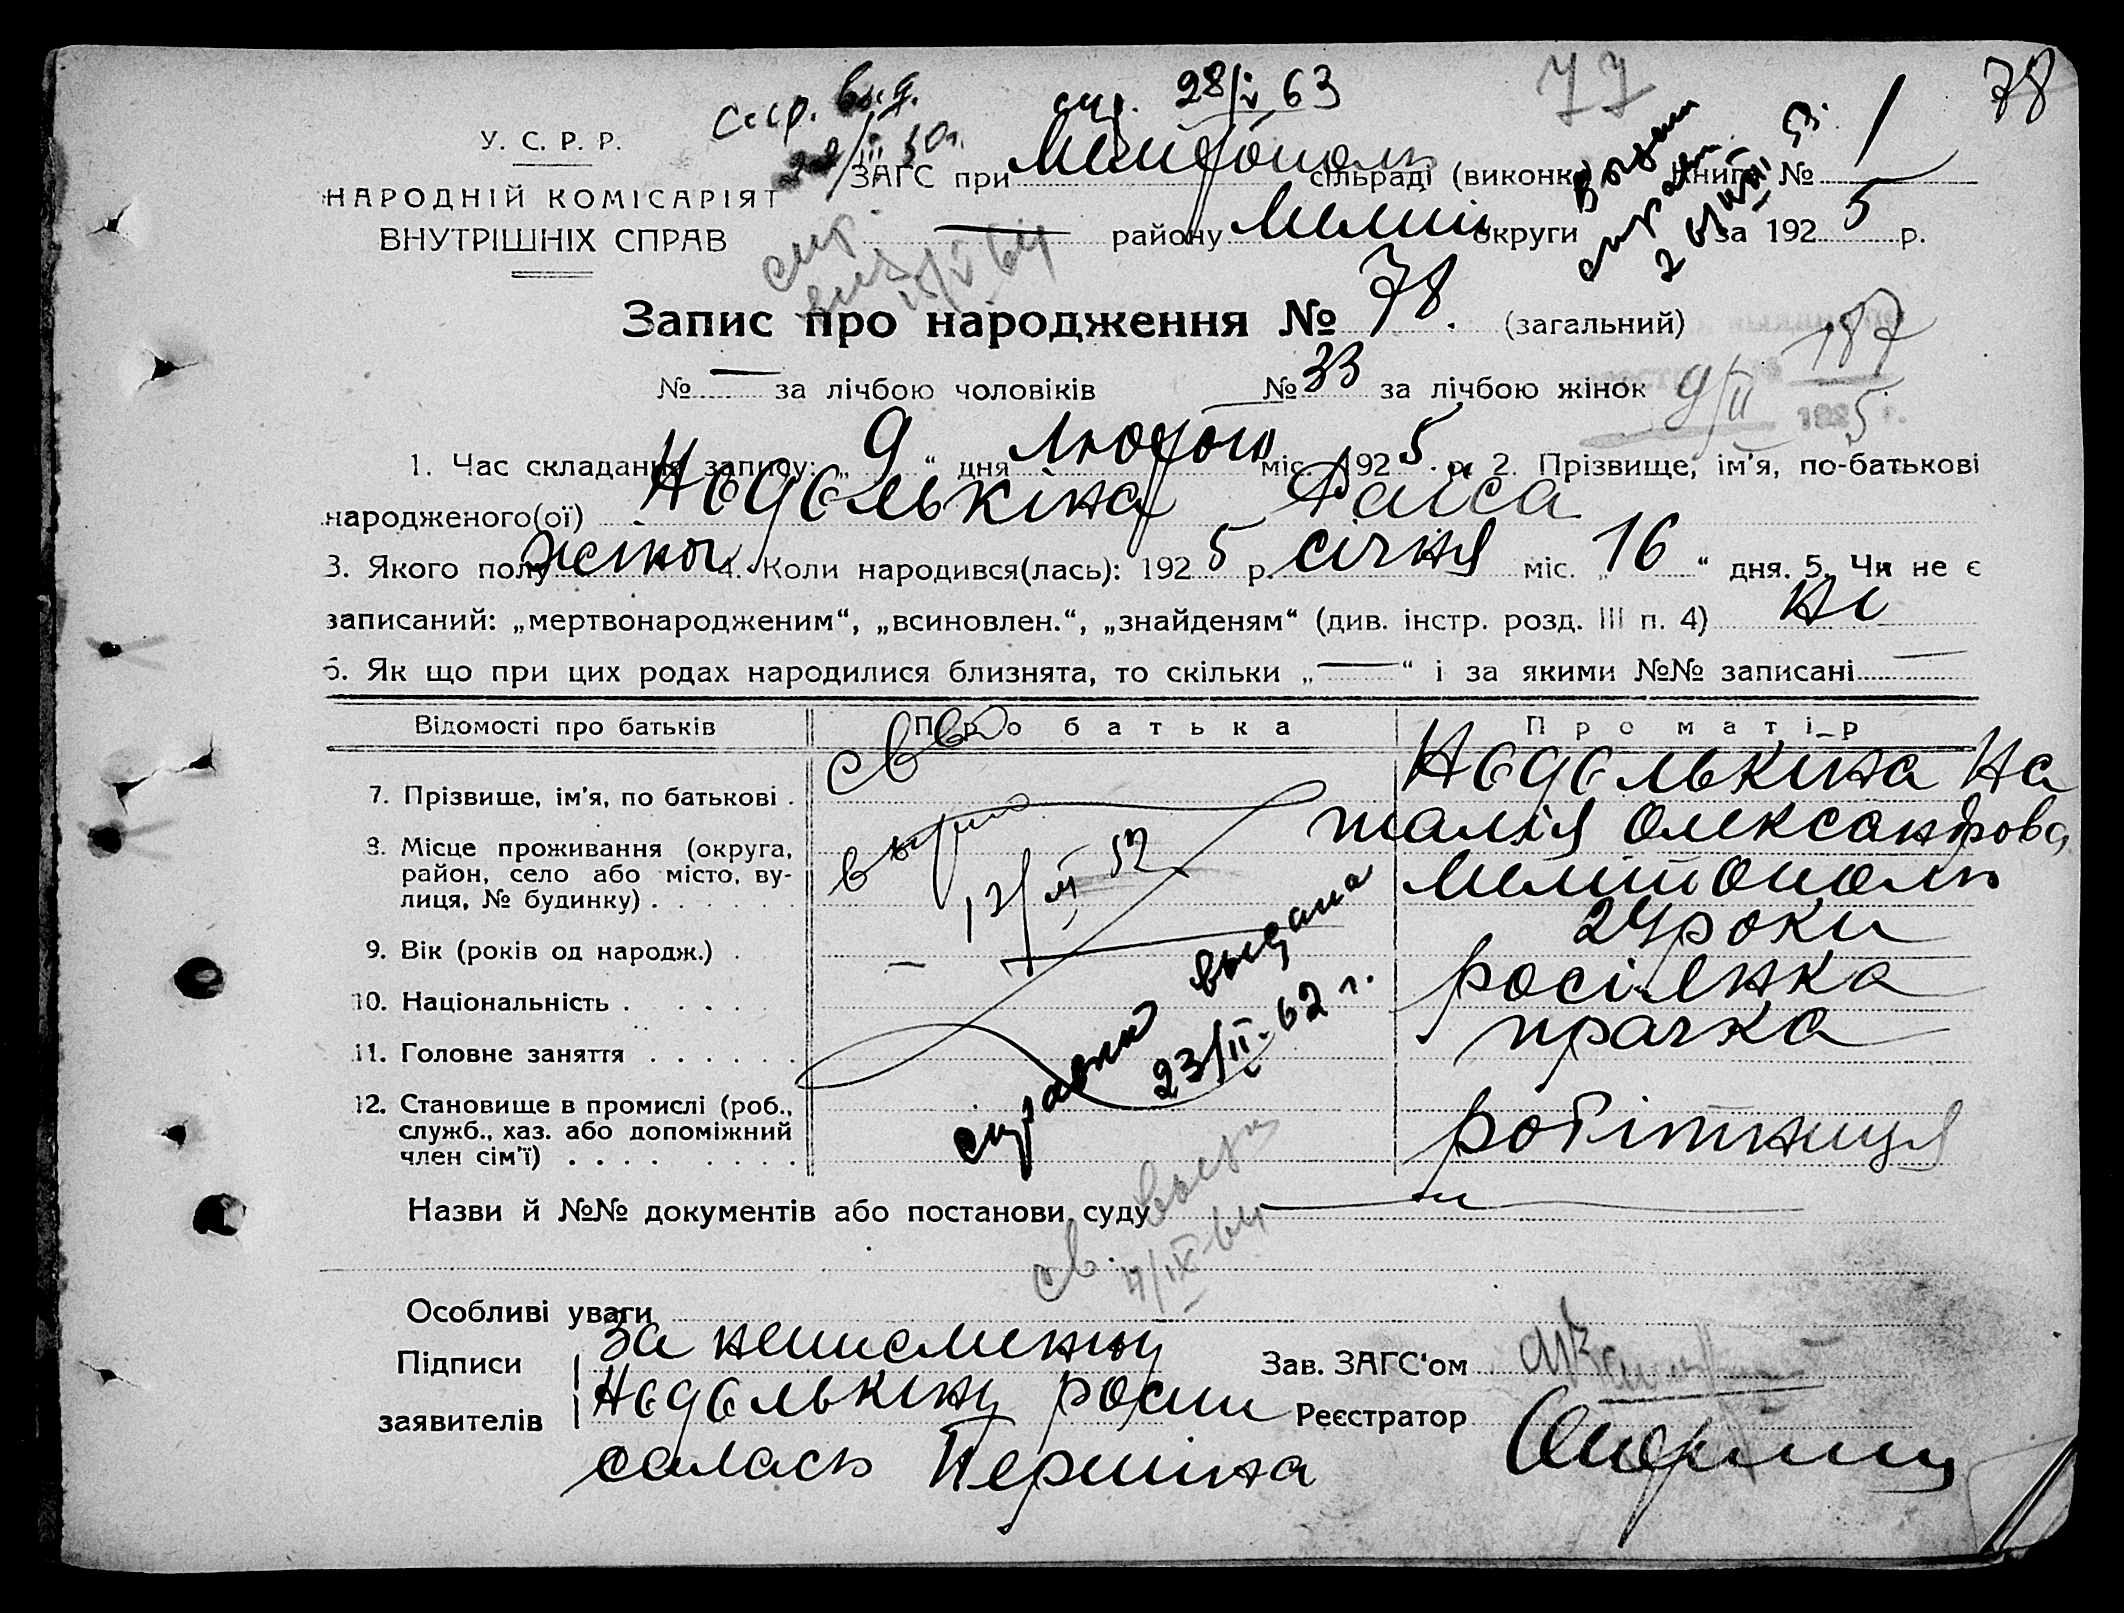 77
78
спр. 28/V 63
спр. выд.
У. С. Р. Р.
НАРОДНІЙ КОМІСАРІЯТ
ВНУТРІШНІХ СПРАВ
ЗАГС при Мелітополь сільраді (виконк.) Книга № 1
— району Меліт округи за 1925 р.
Запис про народження № 78. (загальний)
№ — за лічбою чоловіків № 33 за лічбою жінок
187
9/II 5
1. Час складання запису: „9“ дня лютого міс. 1925 р. 2. Прізвище, ім'я, по-батькові
народженого(ої) Недєлькіна Раїса
3. Якого полу жіноч 4. Коли народився(лась): 1925 р. січня міс. „16“ дня. 5. Чи не є
записаний: „мертвонародженим“, „всиновлен.“, „знайденям“ (див. інстр. розд. III п. 4) ні
6. Як що при цих родах народилися близнята, то скільки „—“ і за якими №№ записані —
Відомості про батьків Про батька Про матір
7. Прізвище, ім'я, по батькові . Недєлькіна На
талія Олександрова
8. Місце проживання (округа,
район, село або місто, ву-
лиця, № будинку) . . . . . . Мелітополь
9. Вік (років од народж.) . — 24 роки
10. Національність . . . . . росіянка
11. Головне заняття . . . . . . прачка
12. Становище в промислі (роб.,
служб., хаз. або допоміжний
член сім'ї) . . . . . . . . . робітниця
справка выдана
23/II.62 г.
Назви й №№ документів або постанови суду —
св. 4/IX 64
Особливі уваги
Підписи За неписменну Зав. ЗАГС'ом
заявителів Недєлькіну роспи Реєстратор
салась Першіна